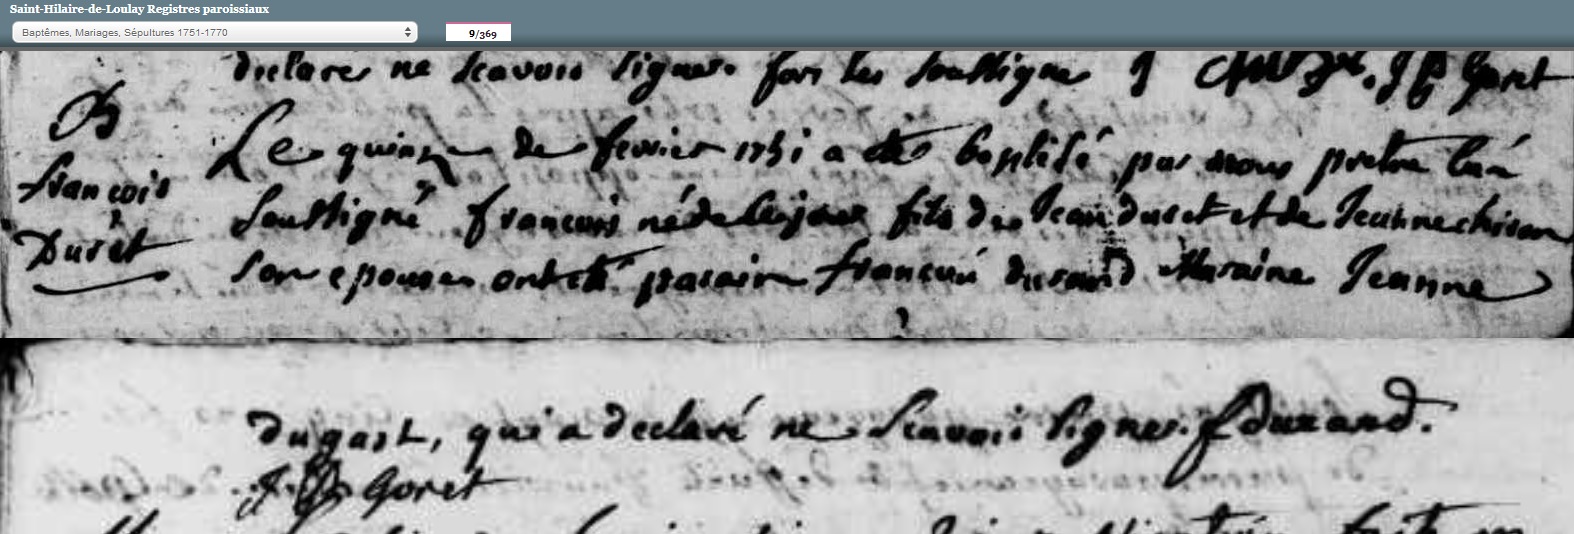 Saint-Hilaire-de-Loulay Registres paroissiaux
Baptêmes, Mariages, Sépultures 1751-1770
9/369
declares ne scavoir signer fors les soussigne J Goret
B
françois
Duret
Le quinze de fevrier 1751 a eté baptisé par nous pretre curé
soussigné françois né de ce jour fils de Jean duret et de Jeanne chiron
son epouse ont eté parain francois durand Maraine Jeanne
Dugast, qui a declaré ne scavoir signer. f durand.
J. Goret